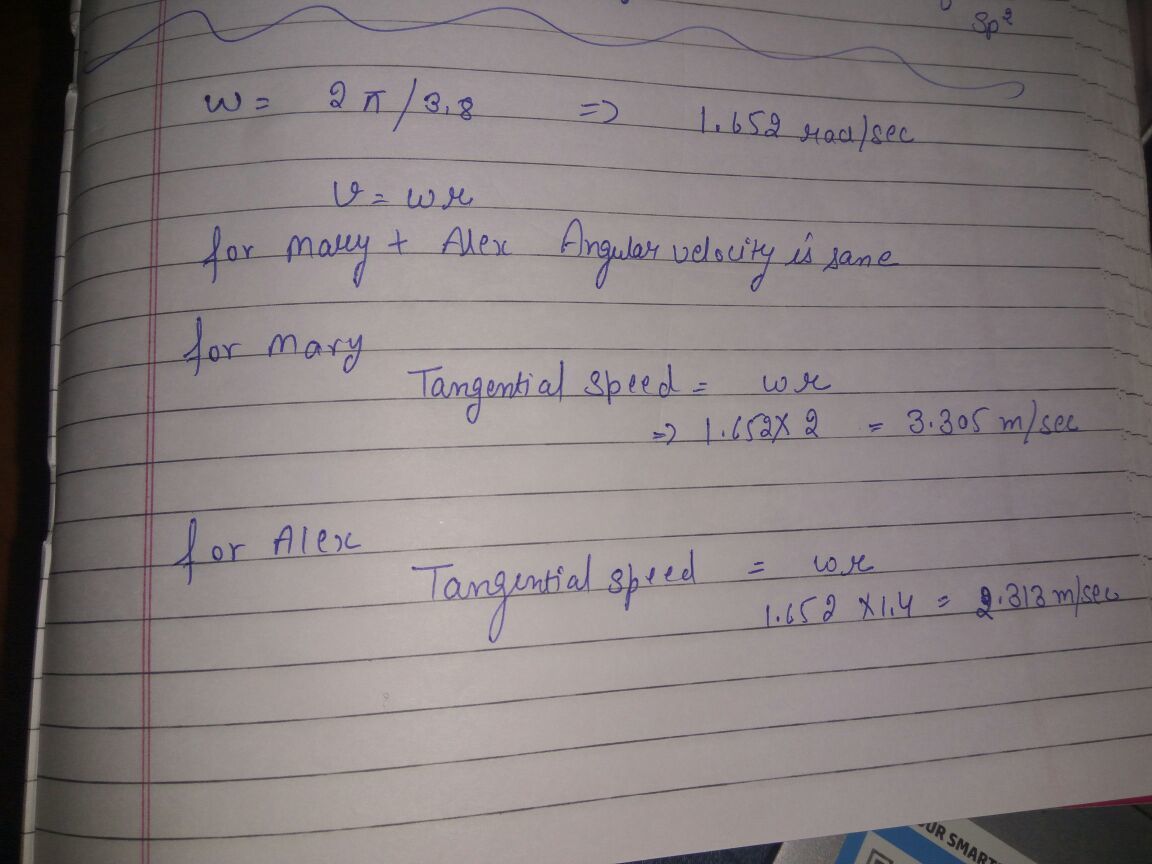 Sp²
w = 2π/3.8 => 1.652 rad/sec
v = wr
for mary + Alex Angular velocity is sane
for mary
Tangential speed = wr
=> 1.652 × 2 = 3.305 m/sec
for Alex
Tangential speed = wr
1.652 × 1.4 = 2.313 m/sec
OUR SMART